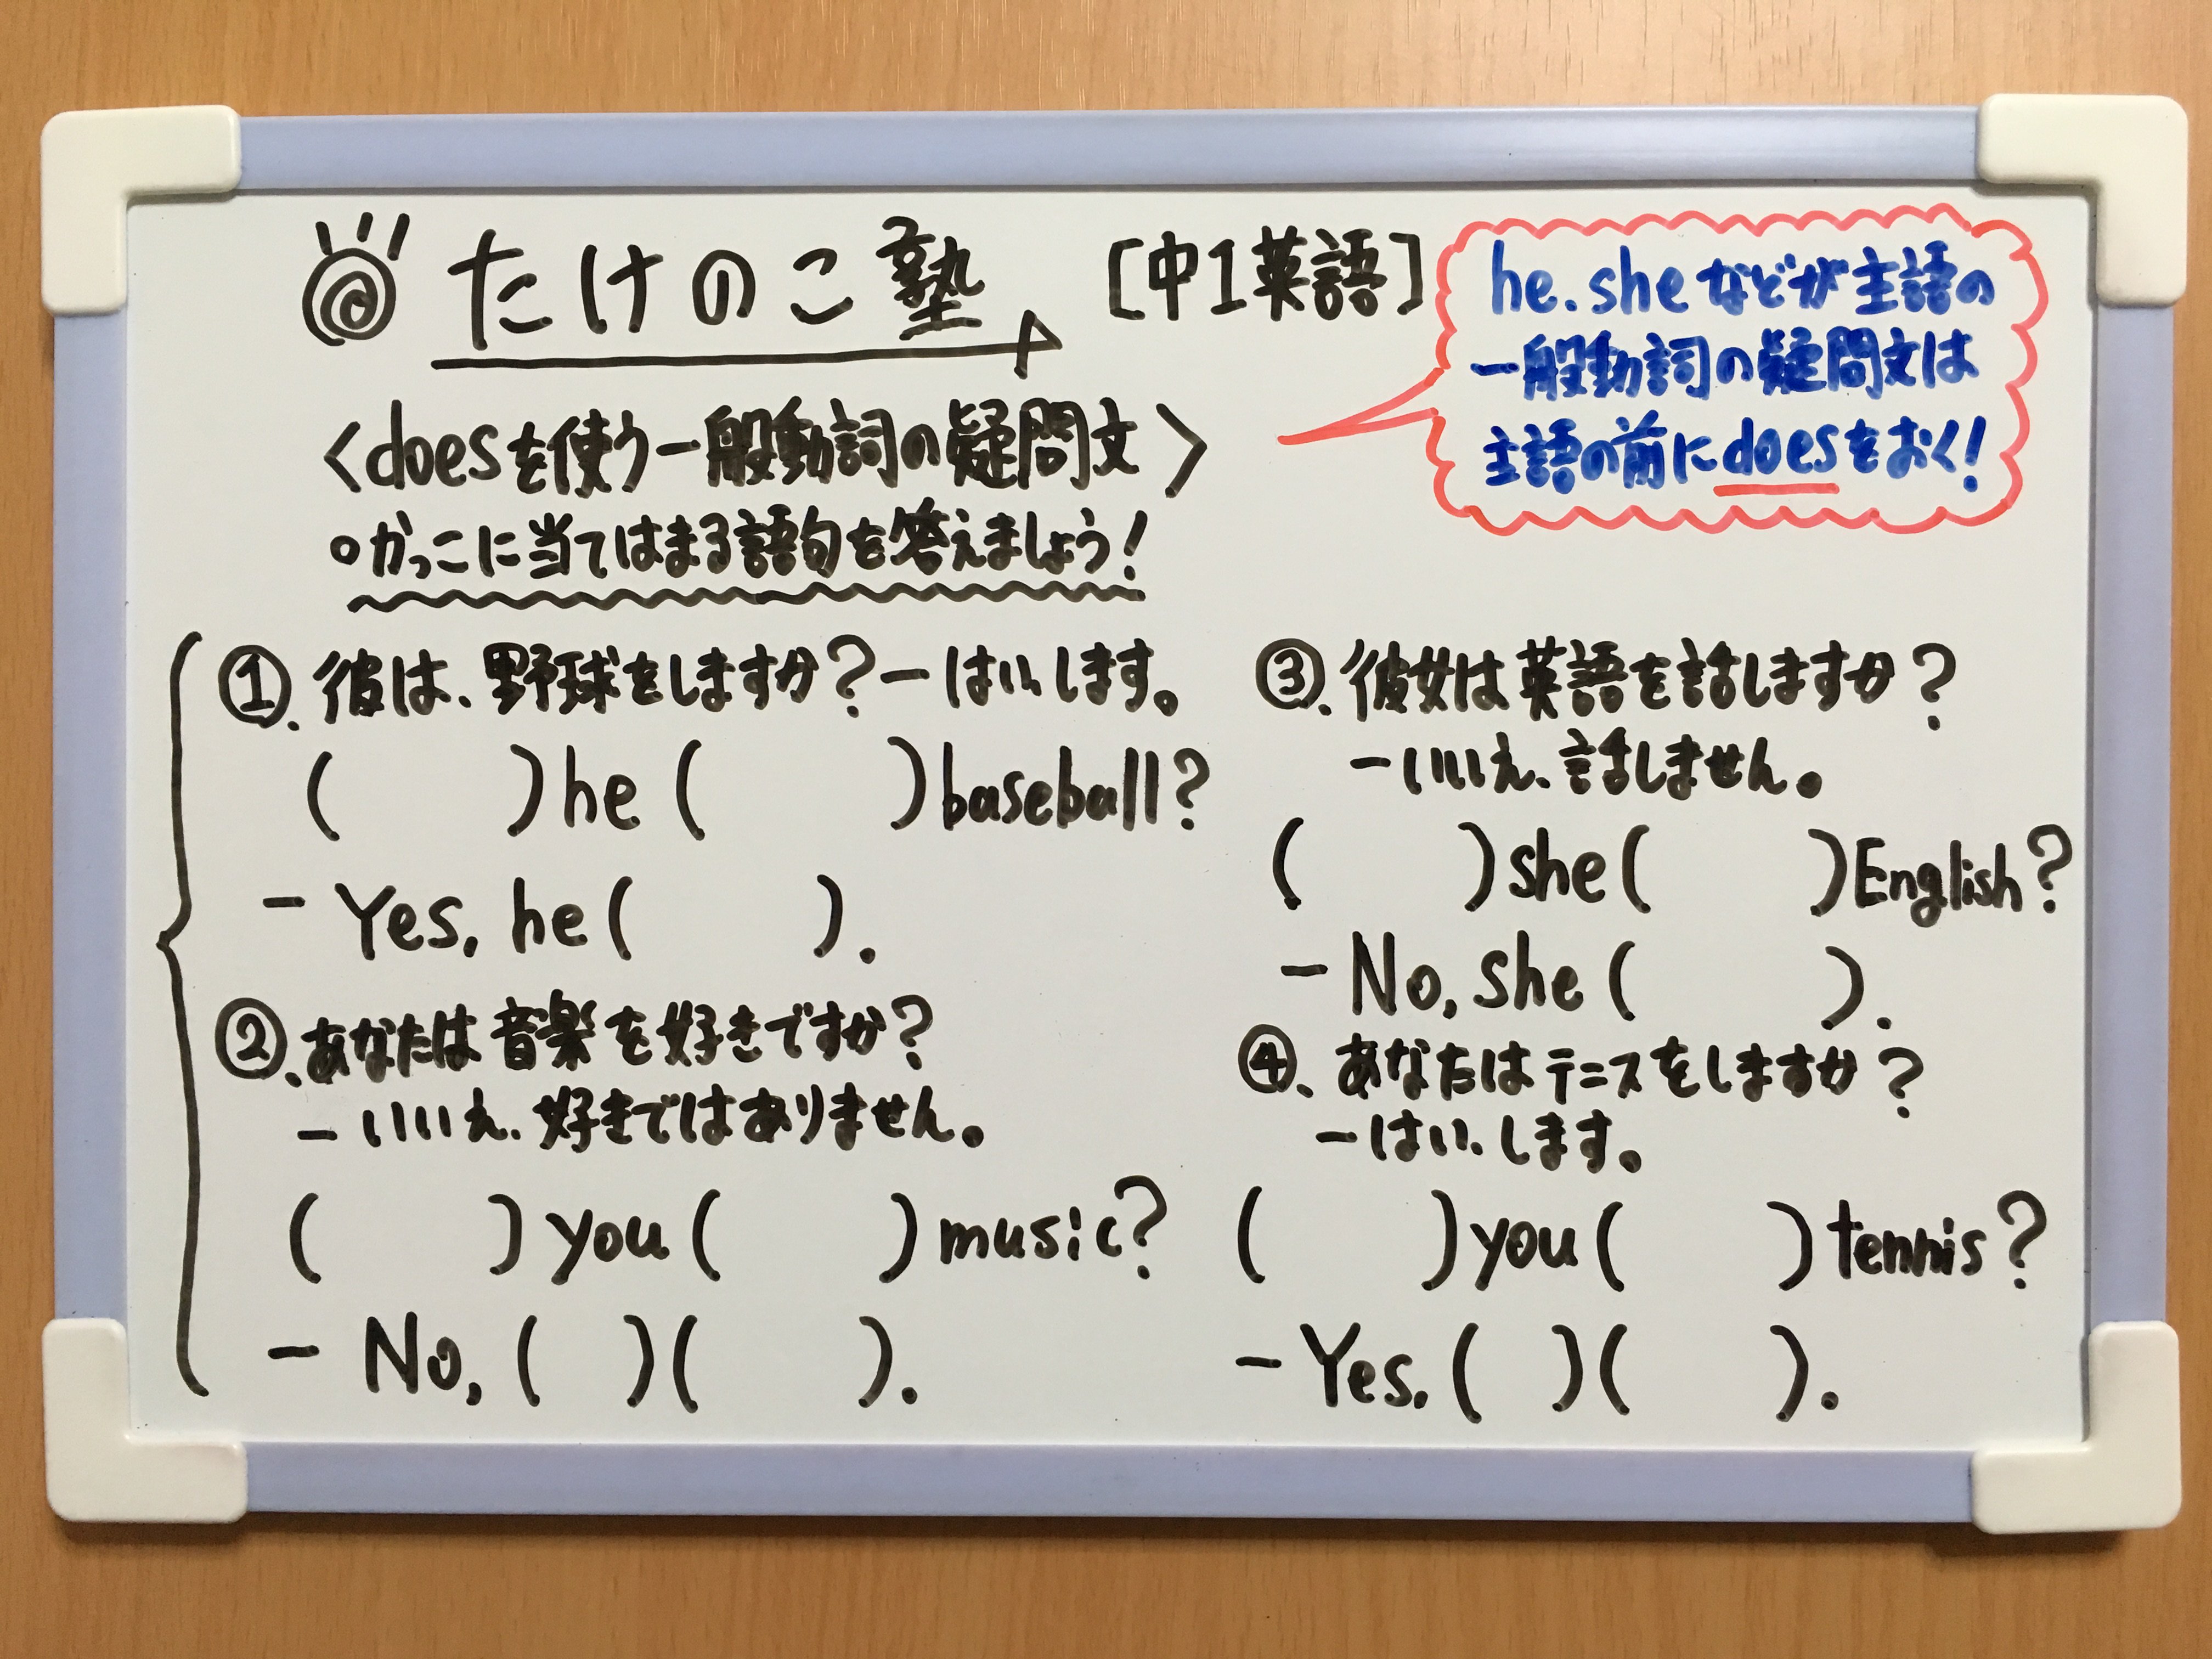 たけのこ塾 [中1英語]
he.sheなどが主語の
一般動詞の疑問文は
主語の前にdoesをおく!
<doesを使う一般動詞の疑問文>
○かっこに当てはまる語句を答えましょう!
①.彼は、野球をしますか?ーはい、します。
(    )he(    )baseball?
- Yes, he(    ).
②.あなたは音楽を好きですか?
-いいえ、好きではありません。
(    )you(    )music?
- No,(  )(    ).
③.彼女は英語を話しますか?
-いいえ、話しません。
(    )she(    )English?
- No, she(    ).
④.あなたはテニスをしますか?
-はい、します。
(    )you(    )tennis?
-Yes,(  )(    ).